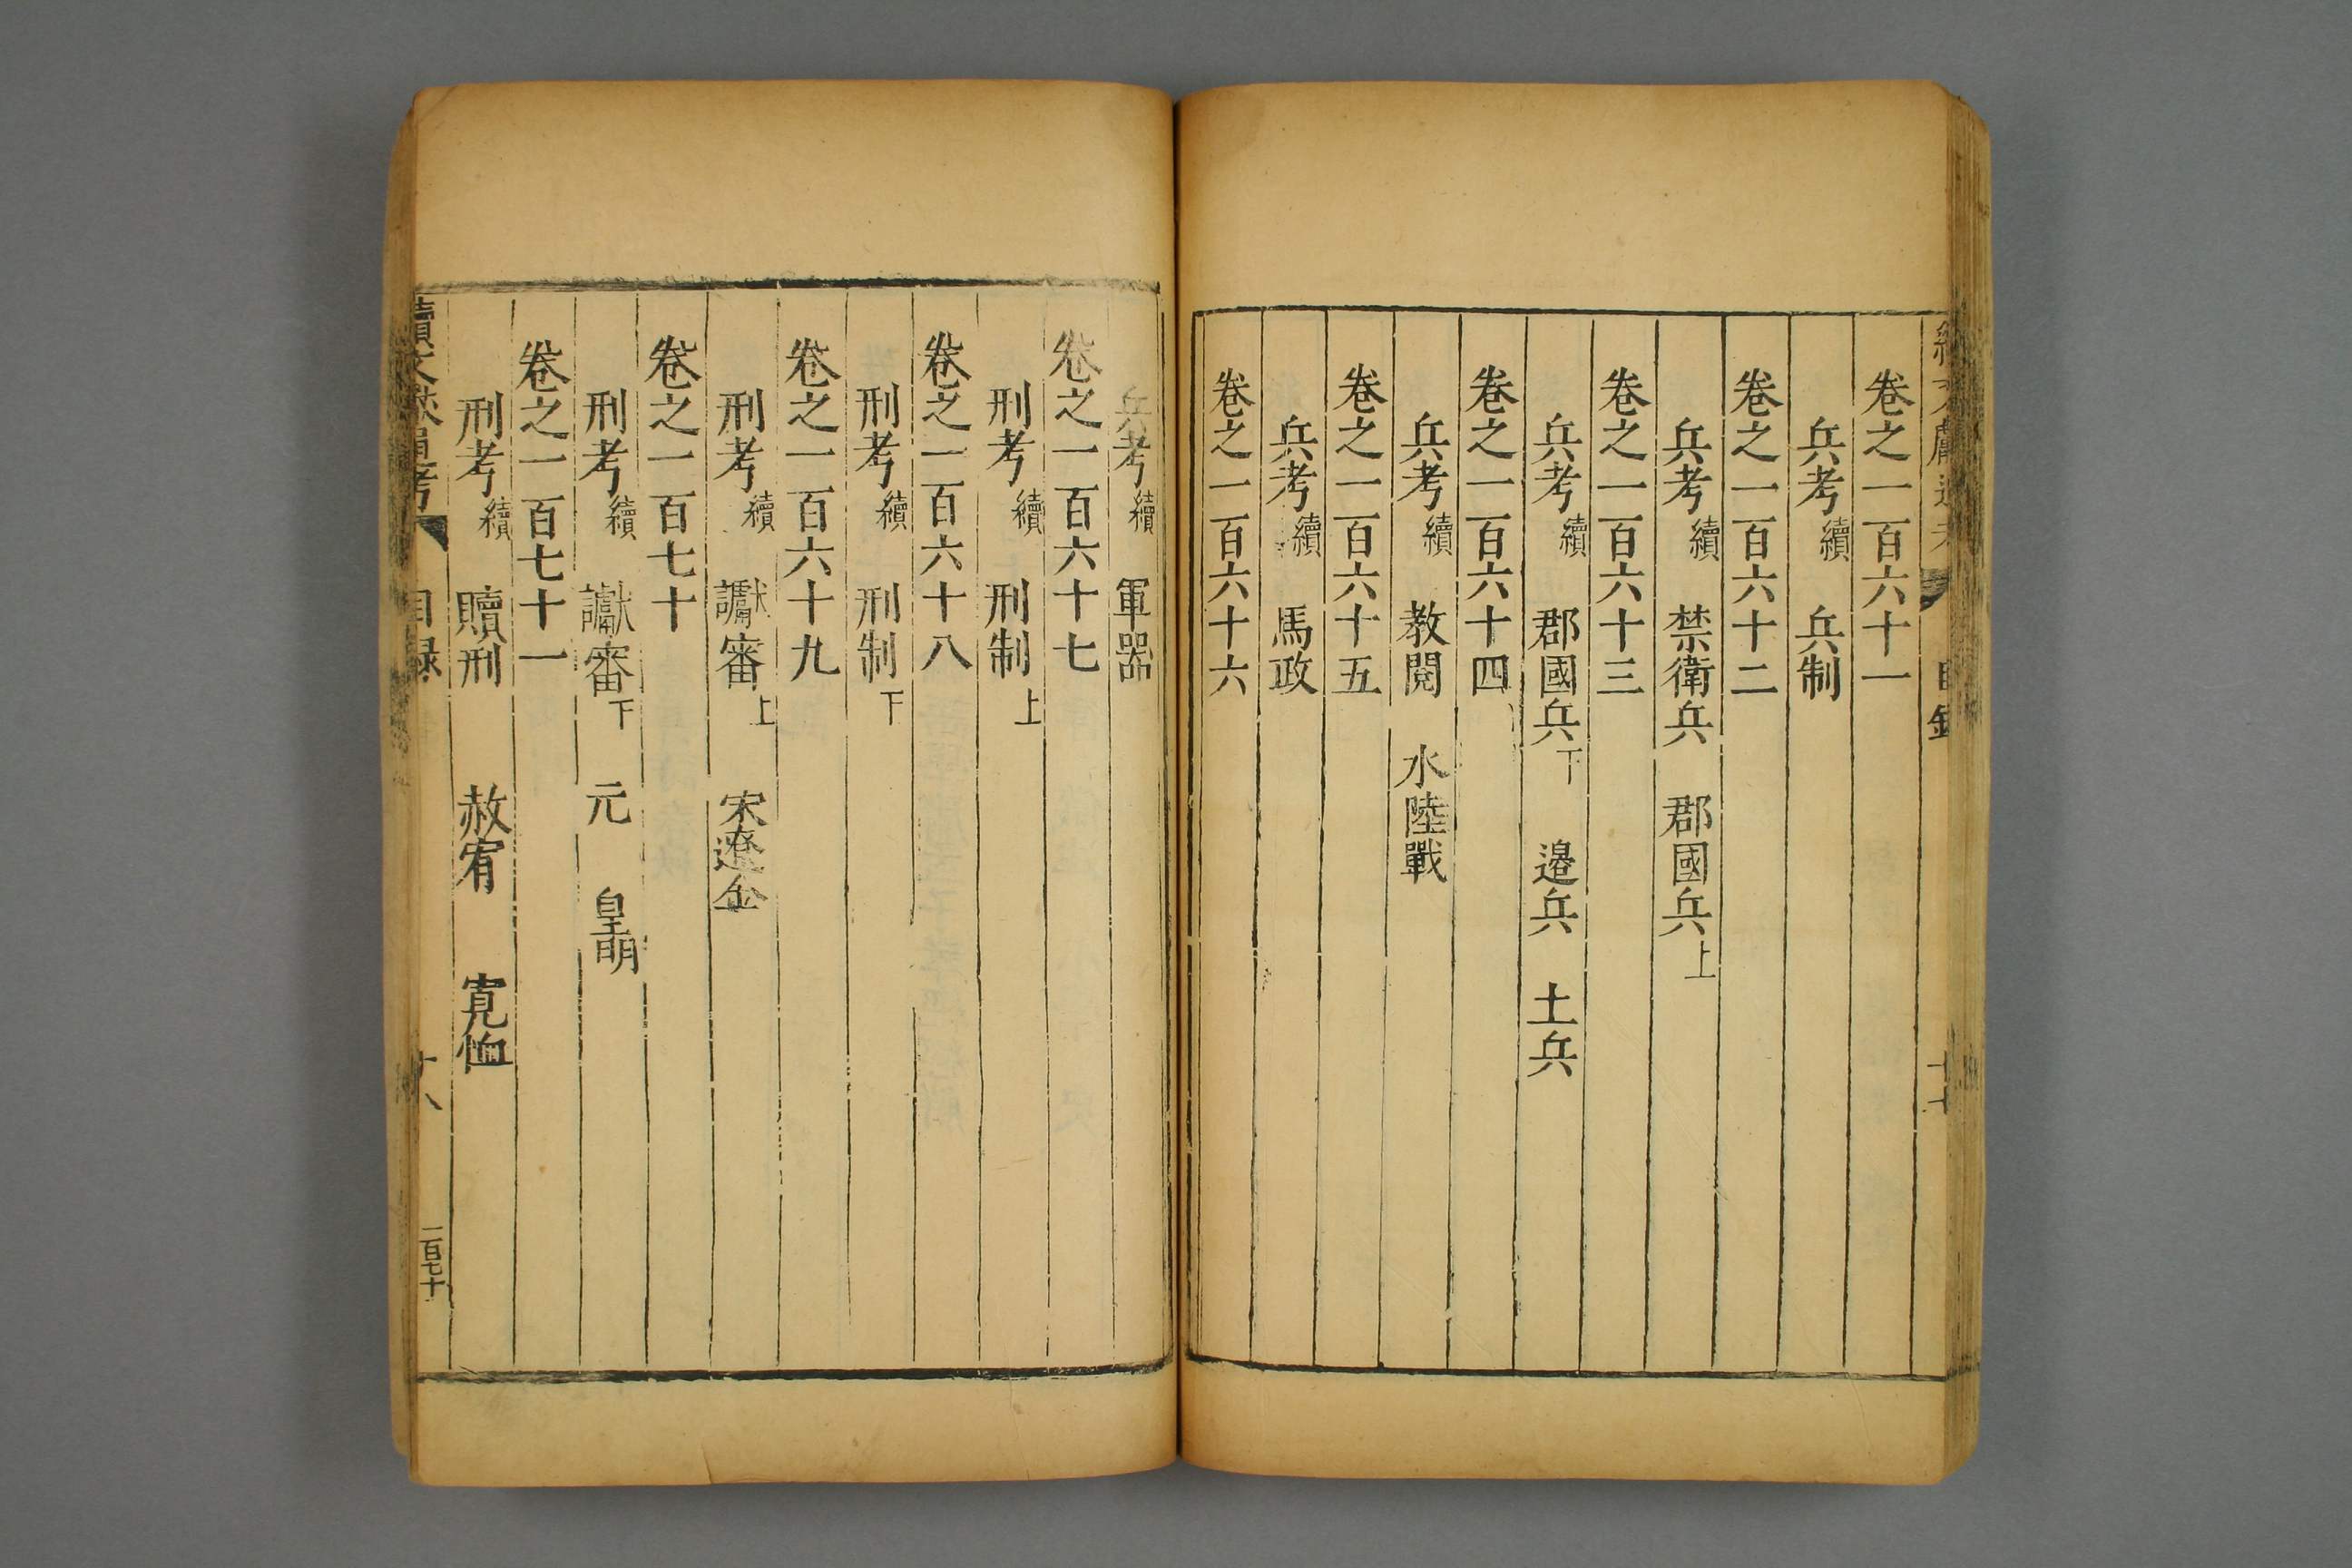 卷之一百六十一
兵考續 兵制
卷之一百六十二
兵考續 禁衛兵 郡國兵上
卷之一百六十三
兵考續 郡國兵下 邉兵 土兵
卷之一百六十四
兵考續 教閱 水陸戰
卷之一百六十五
兵考續 馬政
卷之一百六十六
兵考續 軍器
卷之一百六十七
刑考續 刑制上
卷之一百六十八
刑考續 刑制下
卷之一百六十九
刑考續 讞審上 宋遼金
卷之一百七十
刑考續 讞審下 元 皇明
卷之一百七十一
刑考續 贖刑 赦宥 寬恤
目録
十八
二百七十